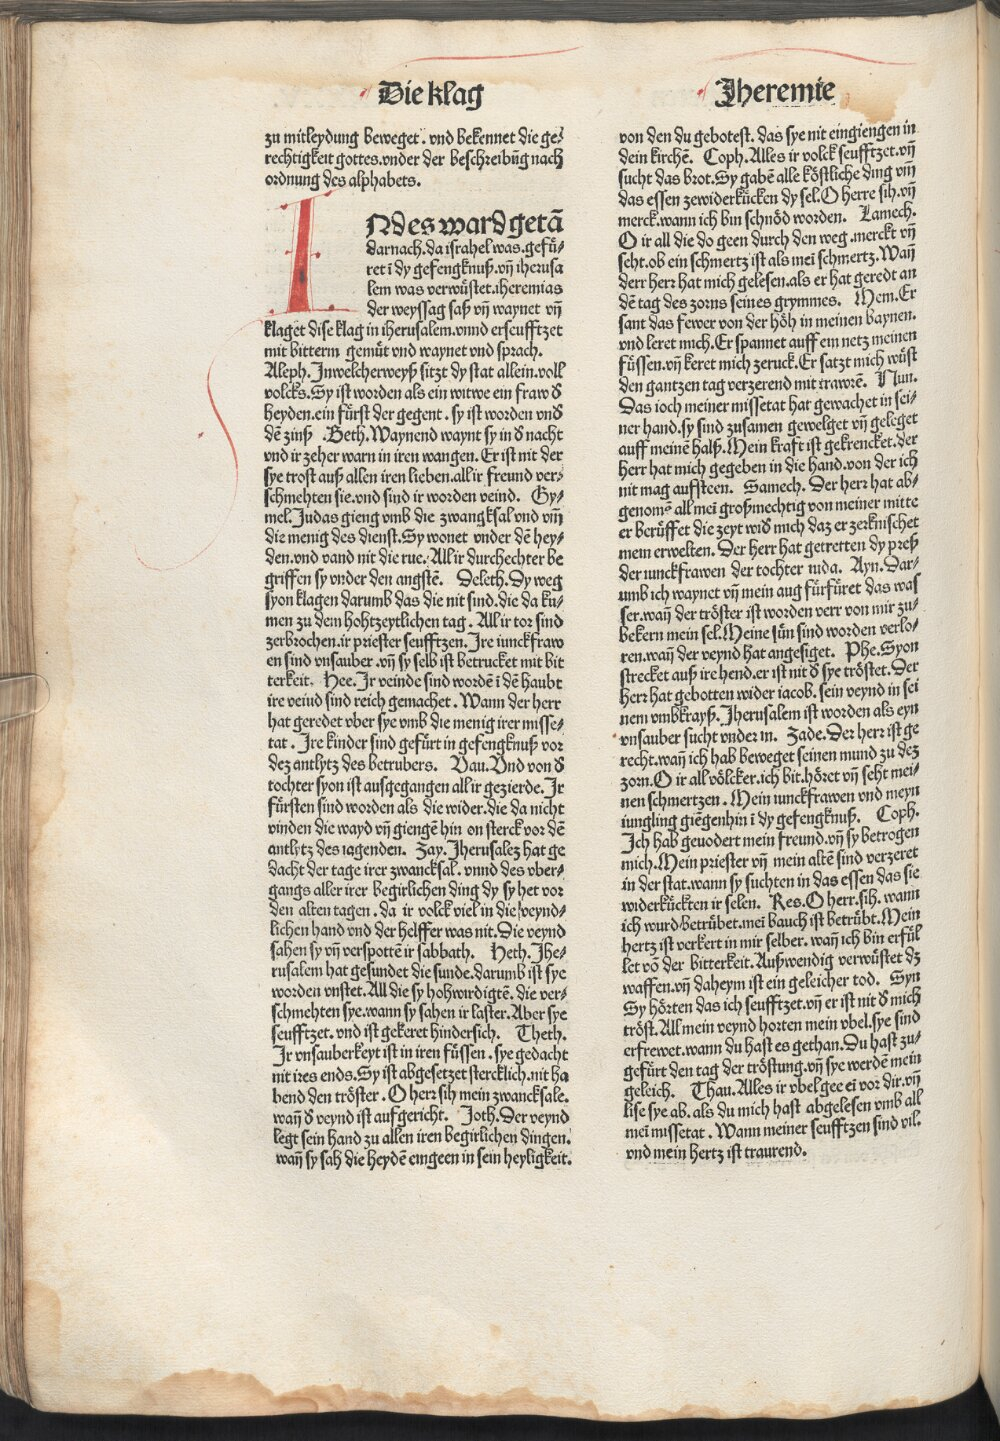 Die klag
Jheremie
zu mitleydung beweget. vnd bekennet die ge⸗
rechtigkeit gottes. vnder der beschreibūg nach
ordnung des alphabets.
INdes ward getā
darnach. da israhel was. gefu͛⸗
ret ī dy gefengknuß. vn̄ iherusa
lem was verwu͛stet. iheremias
der weyssag saß vn̄ waynet vn̄
klaget dise klag in iherusalem. vnnd erseufftzet
mit bitterm gemu͛t vnd waynet vnd sprach.
Aleph. Inwelcherweyß sitzt dy stat allein. voll
volcks. Sy ist worden als ein witwe ein fraw d̄
heyden. ein fu͛rst der gegent. sy ist worden vnd̄
dē zinß. Beth. Waynend waynt sy in d̄ nacht
vnd ir zeher warn in iren wangen. Er ist nit der
sye trost auß allen iren lieben. all ir freund ver⸗
schmehten sie. vnd sind ir worden veind. Gy⸗
mel. Judas gieng vmb die zwangksal vnd vm̄
die menig des dienst. Sy wonet vnder dē hey⸗
den. vnd vand nit die rue. All ir durchechter be
griffen sy vnder den angstē. Deleth. Dy weg
syon klagen darumb das die nit sind. die da ku⸗
men zu dem hohtzeytlichen tag. All ir tor sind
zerbrochen. ir priester seufftzen. Ire iunckfraw
en sind vnsauber. vn̄ sy selb ist betrucket mit bit
terkeit. Hee. Ir veinde sind wordē ī dē haubt
ire veind sind reich gemachet. Wann der herr
hat geredet vber sye vmb die menig irer misse⸗
tat. Ire kinder sind gefu͛rt in gefengknuß vor
dez antlytz des betrubers. Vau. Vnd von d̄
tochter syon ist ausgegangen all ir gezierde. Ir
fu͛rsten sind worden als die wider. die da nicht
vinden die wayd vn̄ giengē hin on sterck vor dē
antlytz des iagenden. Zay. Iherusalez hat ge
dacht der tage irer zwancksal. vnnd des vber⸗
gangs aller irer begirlichen ding dy sy het vor
den alten tagen. da ir volck viel in die veynd⸗
lichen hand vnd der helffer was nit. Die veynd
sahen sy vn̄ verspottē ir sabbath. Heth. Ihe⸗
rusalem hat gesundet die sunde. darumb ist sye
worden vnstet. All die sy hohwirdigtē. die ver⸗
schmehten sye. wann sy sahen ir laster. Aber sye
seufftzet. vnd ist gekeret hindersich. Theth.
Ir vnsauberkeyt ist in iren fu͛ssen. sye gedacht
nit ires ends. Sy ist abgesetzet stercklich. nit ha
bend den tro͛ster. O herr sih mein zwancksale.
wan̄ d̄ veynd ist aufgericht. Joth. Der veynd
legt sein hand zu allen iren begirlichen dingen.
wan̄ sy sah die heydē eingeen in sein heyligkeit.
von den du gebotest. das sye nit eingiengen in
dein kirchē. Coph. Alles ir volck seufftzet. vn̄
sucht das brot. Sy gabē alle ko͛stliche ding vm̄
das essen zewiderku͛cken dy sel. O herre sih. vn̄
merck. wann ich bin schno͛d worden. Lamech.
O ir all die do geen durch den weg. merckt vn̄
seht. ob ein schmertz ist als meī schmertz. Wan̄
derr herr hat mich gelesen. als er hat geredt an
dē tag des zorns seines grymmes. Mem. Er
sant das fewer von der ho͛h in meinen baynen.
vnd leret mich. Er spannet auff ein netz meinen
fu͛ssen. vn̄ keret mich zeruck. Er satzt mich wu͛st
den gantzen tag verzerend mit trawrē. Nun.
Das ioch meiner missetat hat gewachet in sei⸗
ner hand. sy sind zusamen gewelget vn̄ geleget
auff meinē halß. Mein kraft ist gekrencket. der
herr hat mich gegeben in die hand. von der ich
nit mag auffsteen. Samech. Der herr hat ab⸗
genomē all meī großmechtig von meiner mitte
er beru͛ffet die zeyt wid̄ mich daz er zerknischet
mein erwelten. Der herr hat getretten dy preß
der iunckfrawen der tochter iuda. Ayn. Dar⸗
umb ich waynet vn̄ mein aug fu͛rfu͛ret das was
ser. wan̄ der tro͛ster ist worden verr von mir zu⸗
bekern mein sel. Meine su͛n sind worden verlo⸗
ren. wan̄ der veynd hat angesiget. Phe. Syon
strecket auß ire hend. er ist nit d̄ sye tro͛stet. Der
herr hat gebotten wider iacob. sein veynd in sei
nem vmbkrayß. Iherusalem ist worden als eyn
vnsauber sucht vnder in. Zade. Der herr ist ge
recht. wan̄ ich hab beweget seinen mund zu dez
zorn. O ir all vo͛lcker. ich bit. ho͛ret vn̄ seht mei⸗
nen schmertzen. Mein iunckfrawen vnd meyn
iungling giēgenhin ī dy gefengknuß. Coph.
Ich hab geuodert mein freund. vn̄ sy betrogen
mich. Mein priester vn̄ mein altē sind verzeret
in der stat. wann sy suchten in das essen das sie
widerku͛ckten ir selen. Res. O herr. sih. wann
ich wurd betru͛bet. meī bauch ist betru͛bt. Mein
hertz ist verkert in mir selber. wan̄ ich bin erfu͛l
let vō der bitterkeit. Außwendig verwu͛stet dz
waffen. vn̄ daheym ist ein geleicher tod. Syn
Sy ho͛rten das ich seufftzet. vn̄ er ist nit d̄ mich
tro͛st. All mein veynd horten mein vbel. sye sind
erfrewet. wann du hast es gethan. Du hast zu⸗
gefu͛rt den tag der tro͛stung. vn̄ sye werdē mein
geleich. Thau. Alles ir vbel gee eī vor dir. vn̄
lise sye ab. als du mich hast abgelesen vmb all
meī missetat. Wann meiner seufftzen sind vil.
vnd mein hertz ist traurend.